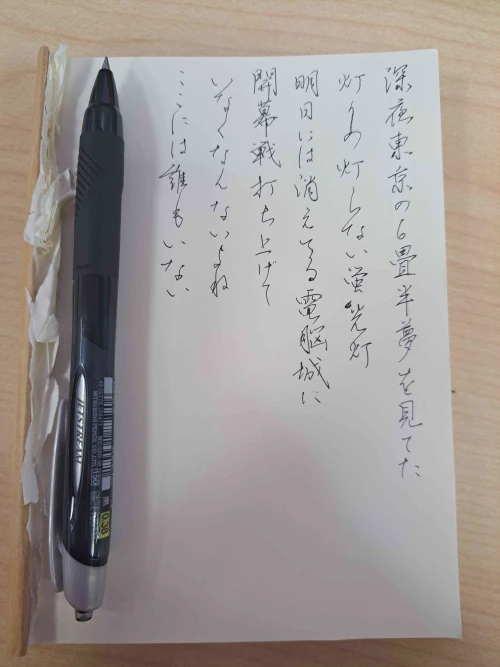 深夜東京の6畳半夢を見てた
灯りの灯らない萤光灯
明日には消えてる電脳城に
開幕戦打ち上げて
いなくなんないよね
ここには誰もいない
JETSTREAM
MITSUBISHI PENCIL CO.,LTD.
0.38